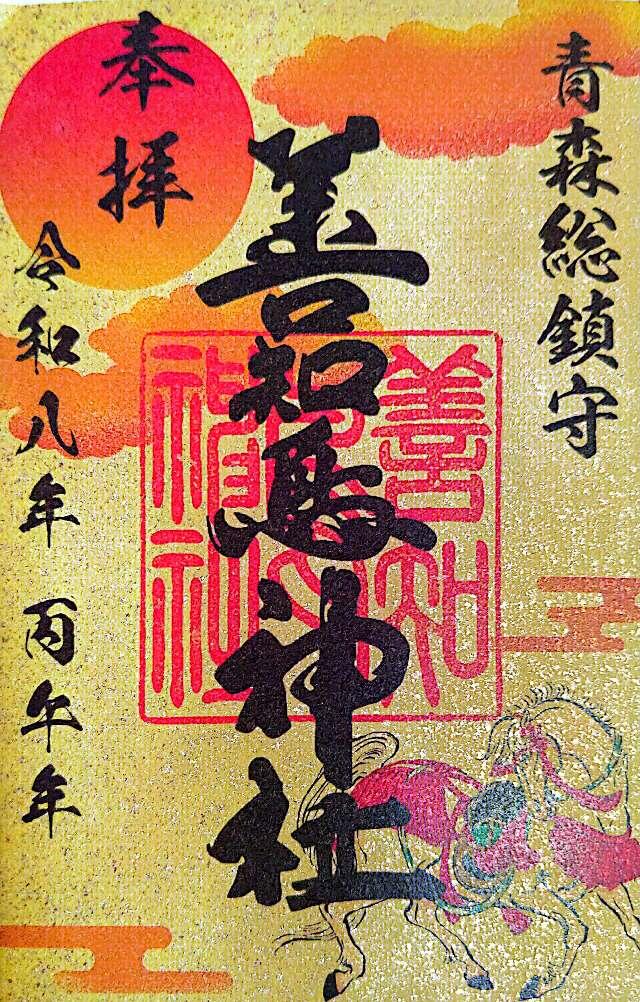 青森総鎮守
善知鳥神社
奉拝
令和八年 丙午年
善知
鳥
神社